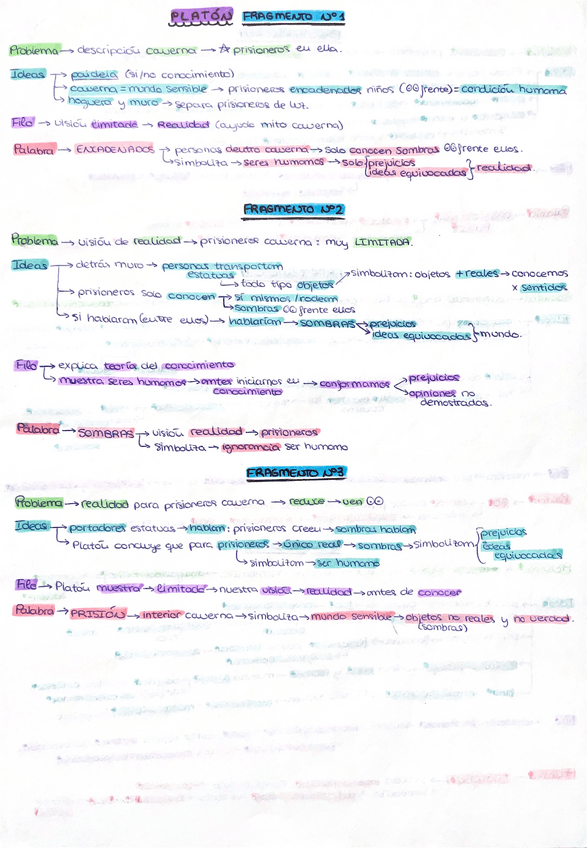 PLATÓN FRAGMENTO Nº1
Problema → descripción caverna → prisioneros en ella.
Ideas → paideia (si/no conocimiento)
→ caverna = mundo sensible → prisioneros encadenados niños (frente) = condición humana
→ hoguera y muro → separa prisioneros de luz.
Filo → visión limitada → Realidad (ayuda mito caverna)
Palabra → ENCADENADOS → personas dentro caverna → solo conocen sombras frente ellos.
→ simboliza → seres humanos → solo { prejuicios
ideas equivocadas } realidad.
FRAGMENTO Nº2
Problema → visión de realidad → prisioneros caverna: muy LIMITADA.
Ideas → detrás muro → personas transportan
estatuas
→ todo tipo objetos → simbolizan: objetos + reales → conocemos
x sentidos
→ prisioneros solo conocen → sí mismos / rodean
→ sombras frente ellos
→ si hablaran (entre ellos) → hablarían → SOMBRAS → prejuicios
ideas equivocadas } mundo.
Filo → explica teoría del conocimiento
→ muestra seres humanos → antes iniciarnos en → conformamos
conocimiento
prejuicios
opiniones no
demostradas.
Palabra → SOMBRAS → visión realidad → prisioneros
→ simboliza → ignorancia ser humano
FRAGMENTO Nº3
Problema → realidad para prisioneros caverna → reduce → ven
Ideas → portadores estatuas → hablan: prisioneros creen → sombras hablan
→ Platón concluye que para prisioneros → único real → sombras → simbolizan { prejuicios
ideas
equivocadas
→ simbolizan → ser humano
Filo → Platón muestra → limitada → nuestra visión → realidad → antes de conocer
Palabra → PRISIÓN → interior caverna → simboliza → mundo sensible → objetos no reales y no verdad.
(sombras)